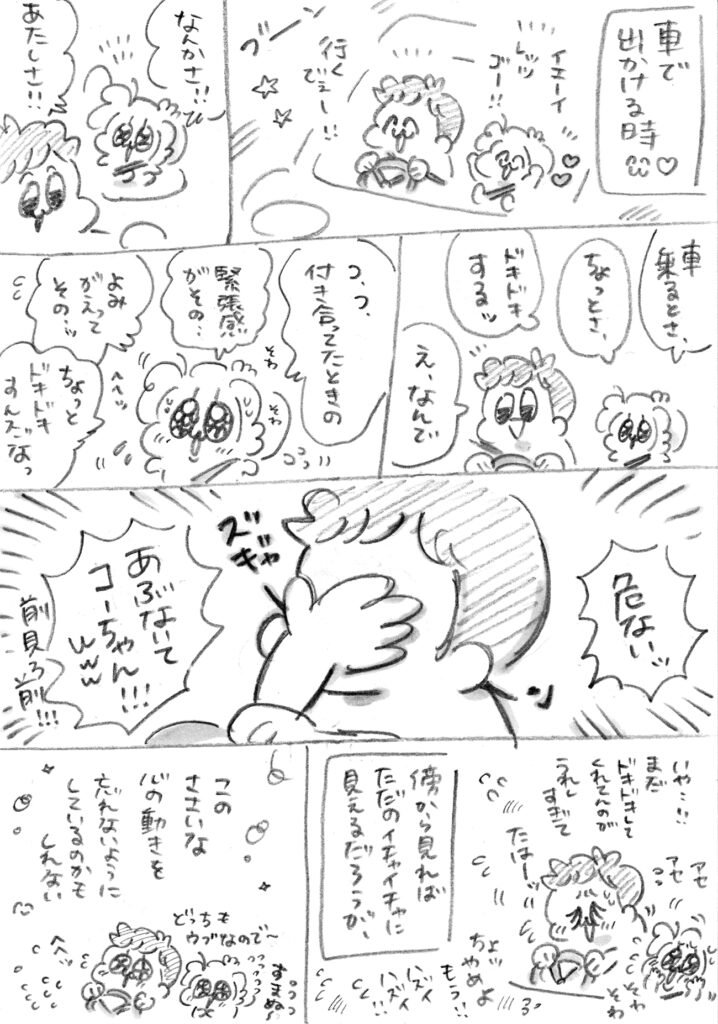 車で
出かける時♡
イエーイ
レッツ
ゴー!!
行く
でぇー!!
ブーン
なんかさ!!
あたしさ!!
車
乗るとさ、
ちょっとさ、
ドキドキ
するッ
え、なんで
コ、コ、
付き合ってたときの
緊張感
がその‥
よみ
がえって
その‥ッ
ちょっと
ドキドキ
すんだなっ
そわ
そわ
へへッ
危ないッ
ズギャ
ン
あぶないて
コーちゃん!!!
www
前見ろ前!!!
いや‥!!
まだ
ドキドキして
くれてんのが
うれし
すぎて
たはーッ
アセ
アセ
そわ
そわ
ちょッ
ちゃめよ
もう!!
ハズイ
ハズイ!!
傍から見れば
ただのイチャイチャに
見えるだろうが、
この
ささいな
心の動きを
忘れないように
しているのかも
しれない
どっちも
ウブなので〜
すまぬ〜
へへッ